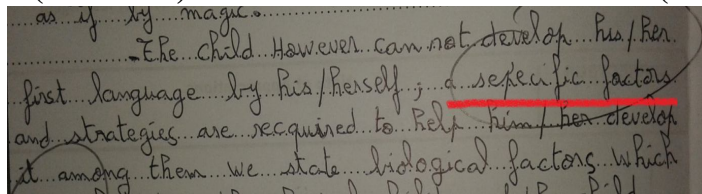 as if by magic.
- The child However can not develop his/her
first language by his/herself; a sepecific factors
and strategies are recquired to help him/her develop
it among them we state biological factors which